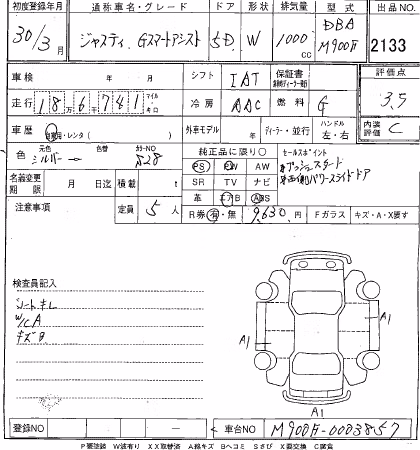 初度登録年月 通称車名・グレード ドア 形状 排気量 型式 出品NO.
30/3月 ジャスティ Gスマートアシスト 5D W 1000cc DBA M900F 2133
車検 年 月 シフト IAT 保証書 評価点 3.5
走行 18万6千741 マイル・キロ 冷房 AAC 燃料 G
車歴 自家用・レンタ( ) 外車モデル 年 ディーラー・並行 ハンドル 左・右 内装評価 C
色 元色 シルバー→ 色替 カラーNO S28 純正品に限り○ セールスポイント
名義変更期限 月 日迄 積載 t PS PW AW プッシュスタート
SR TV ナビ 両側パワースライドドア
注意事項 定員 5人 革 エアB ABS
R券 有・無 9,630円 Fガラス キズ・A・X要す
検査員記入
シートキレ
W/CA
キズ
A1
A1
A1
登録NO 車台NO M900F-0003857
P要塗装 W波有り XX取替済 A線キズ Bヘコミ Sさび X要交換 C腐食